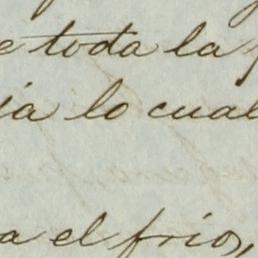 e toda la
ia lo cual
a el frio,